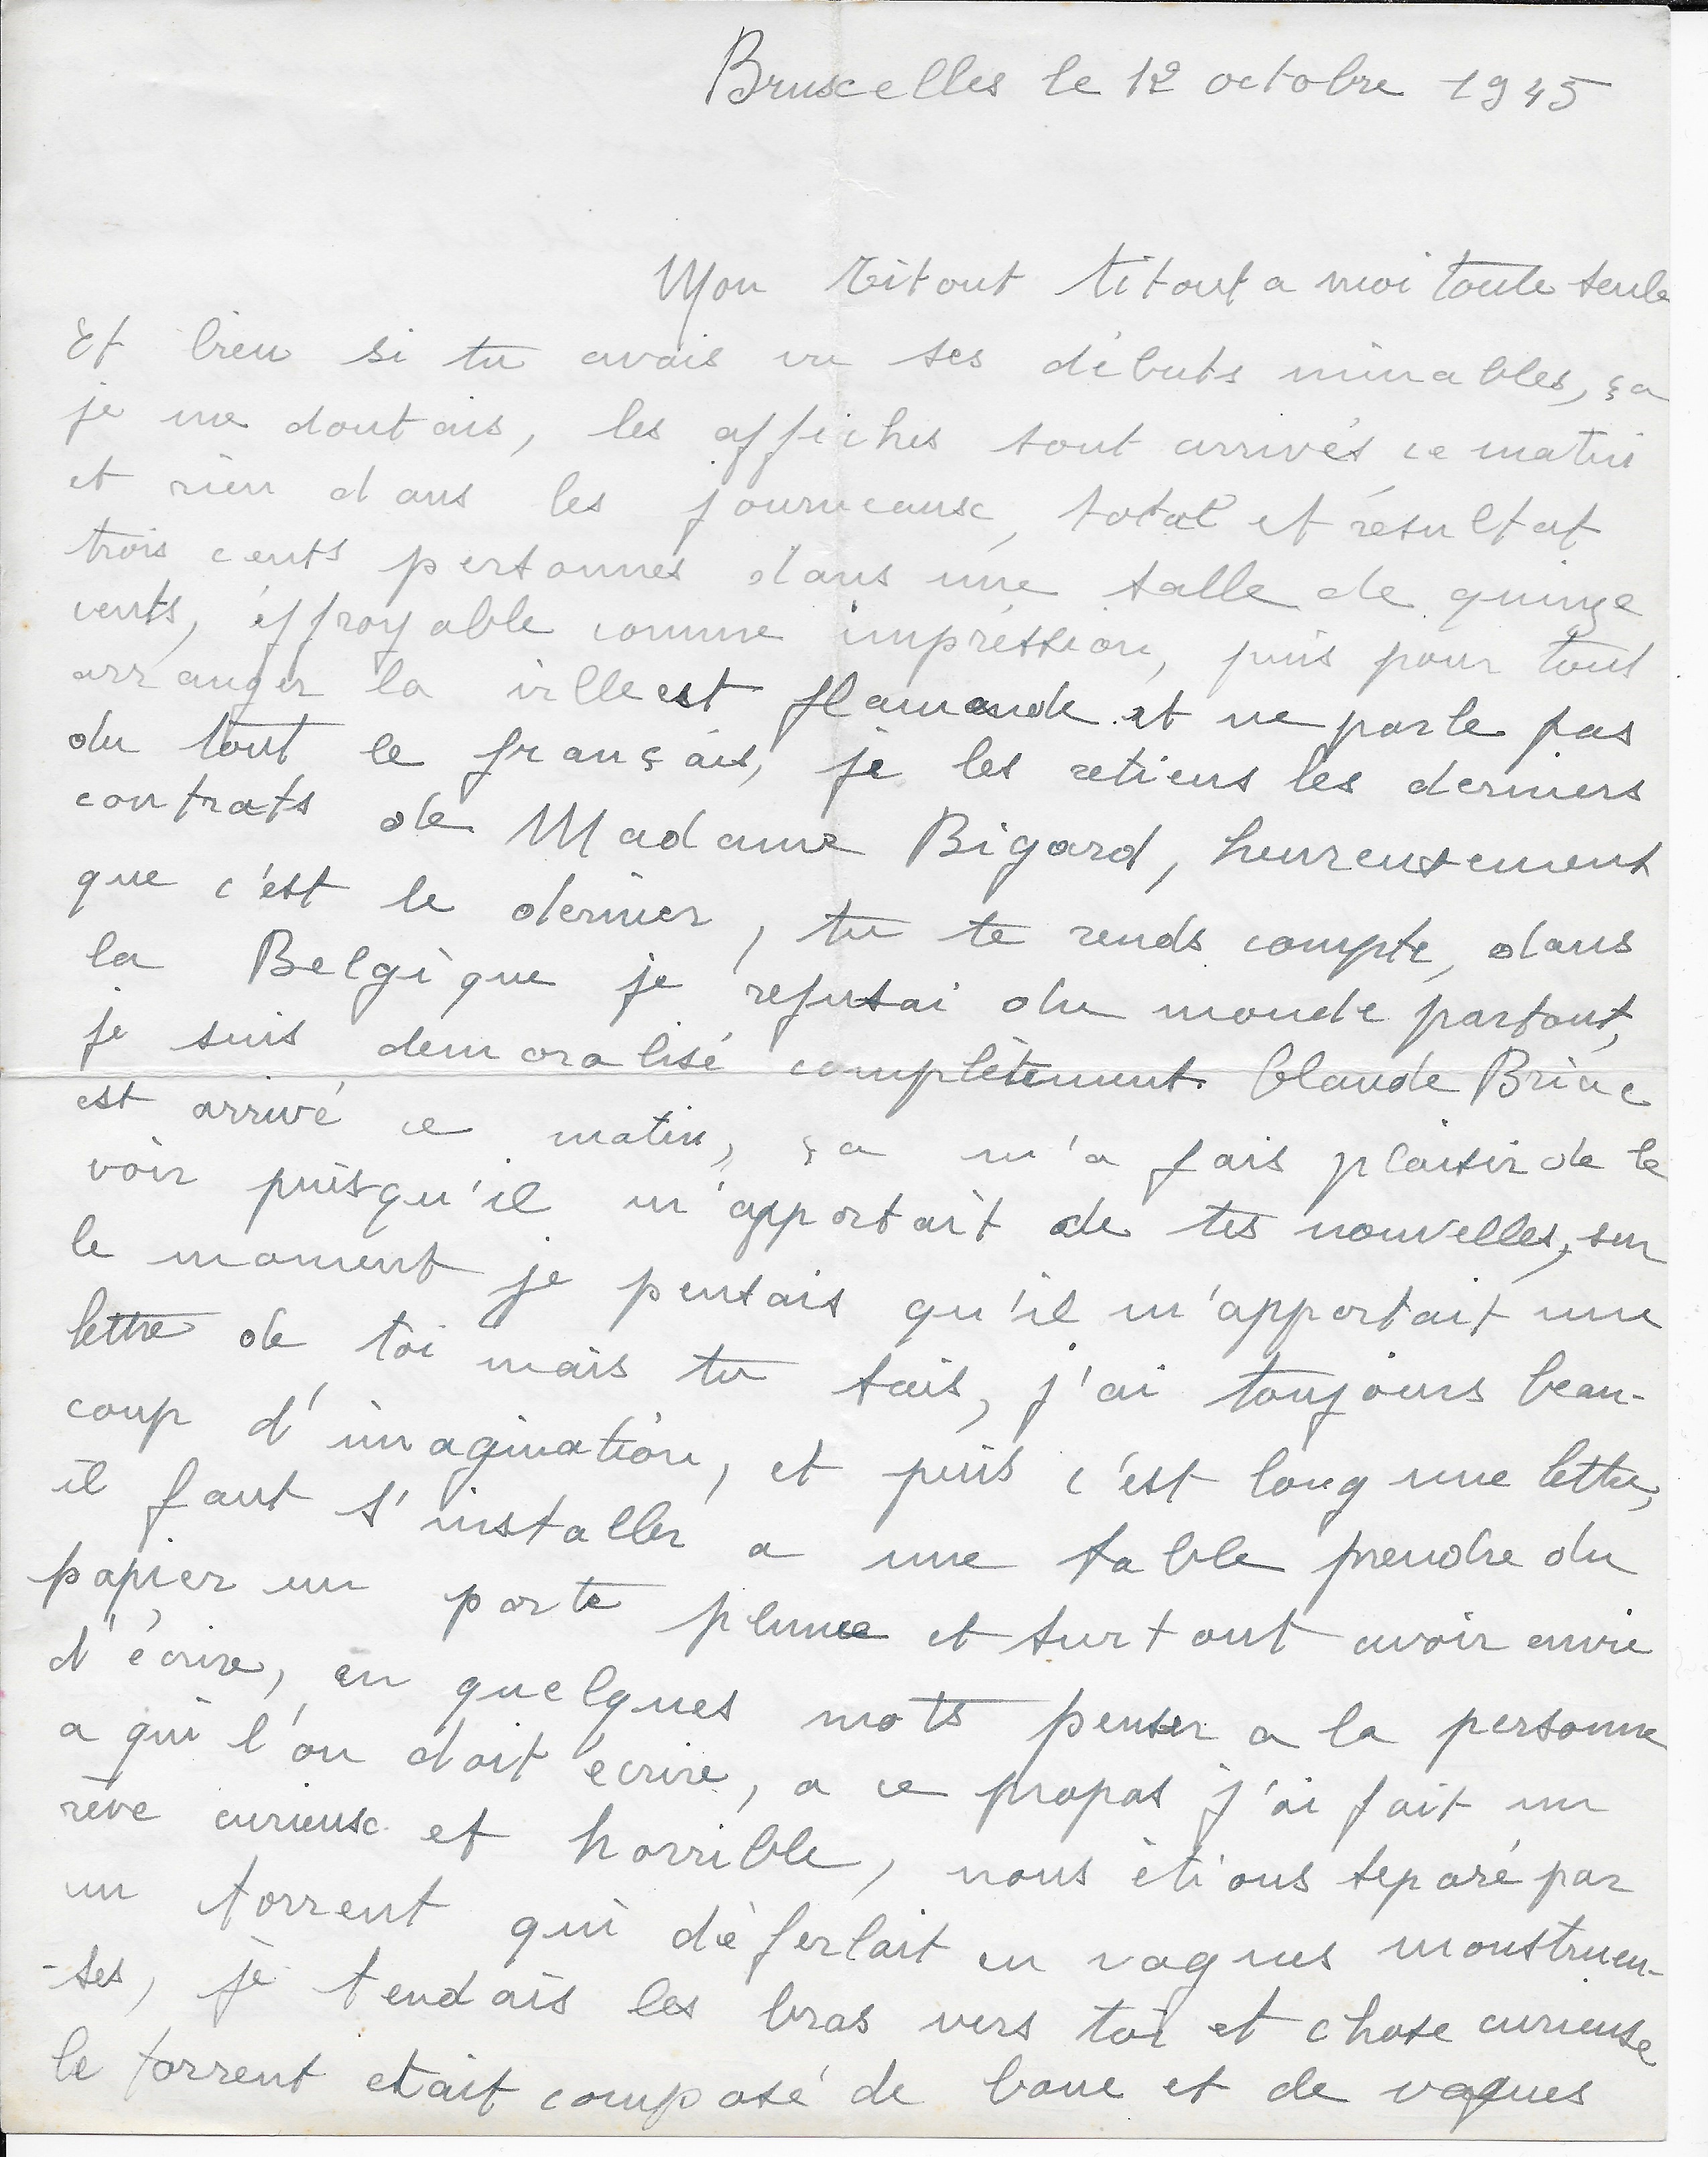 Bruxelles le 12 octobre 1945
Mon titout titout a moi toute seule
Et bien si tu avais vu ses débuts minables, ça
je me doutais, les affiches sont arrivés ce matin
et rien dans les journeaux, total et résultat
trois cents personnes dans une salle de quinze
cents, éffroyable comme impréssion, puis pour tout
arranger la ville est flamande et ne parle pas
du tout le français, je les retiens les derniers
contrats de Madame Bigard, heureusement
que c'est le dernier, tu te rends compte, dans
la Belgique je refusai du monde partout,
je suis demoralisé complètement. Claude Briac
est arrivé ce matin, ça m'a fais plaisir de le
voir puisqu'il m'apportait de tes nouvelles, sur
le moment je pensais qu'il m'apportait une
lettre de toi mais tu sais, j'ai toujours beau-
coup d'imagination, et puis c'est long une lettre,
il faut s'installer a une table prendre du
papier un porte plume et surtout avoir envie
d'écrire, en quelques mots penser a la personne
a qui l'on doit écrire, a ce propos j'ai fait un
rêve curieux et horrible, nous étions separé par
un torrent qui déferlait en vagues monstrueu-
-ses, je tendais les bras vers toi et chose curieuse
le torrent etait composé de boue et de vagues